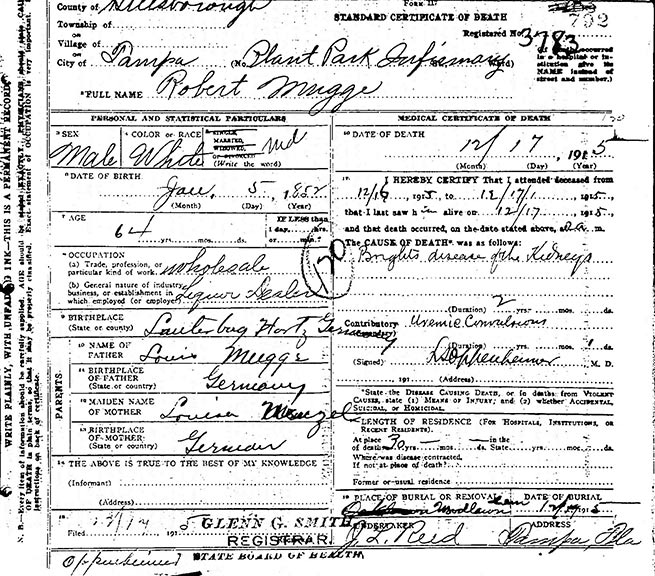 County of Hillsborough
FORM 117
STANDARD CERTIFICATE OF DEATH
792
Township of
or
Registered No. 3783
Village of
or
City of Tampa (No. Plant Park Infirmary Ward)
(If death occurred in a hospital or institution give its NAME instead of street and number.)
2 FULL NAME Robert Mugge
PERSONAL AND STATISTICAL PARTICULARS
3 SEX
Male
4 COLOR OR RACE
White
5 SINGLE, MARRIED, WIDOWED, OR DIVORCED
(Write the word)
Md
6 DATE OF BIRTH
Jan. 5, 1852
(Month) (Day) (Year)
7 AGE
64 yrs. mos. ds.
IF LESS than 1 day, hrs. or min.?
8 OCCUPATION
(a) Trade, profession, or particular kind of work wholesale
(b) General nature of industry, business, or establishment in which employed (or employer) Liquor Dealer
9 BIRTHPLACE
(State or country) Germany
10 NAME OF FATHER Louis Mugge
11 BIRTHPLACE OF FATHER
(State or country) Germany
12 MAIDEN NAME OF MOTHER Louisa
13 BIRTHPLACE OF MOTHER
(State or country)
PARENTS
14 THE ABOVE IS TRUE TO THE BEST OF MY KNOWLEDGE
(Informant)
(Address)
15
Filed 191 5 GLENN G. SMITH
REGISTRAR
Oppenheimer
STATE BOARD OF HEALTH
MEDICAL CERTIFICATE OF DEATH
16 DATE OF DEATH
12/17 1915
(Month) (Day) (Year)
17 I HEREBY CERTIFY That I attended deceased from
12/16, 1915 to 12/17, 1915
that I last saw him alive on 12/17, 1915
and that death occurred, on the date stated above, at m.
The CAUSE OF DEATH was as follows:
Brights disease of the Kidneys
(Duration) 2 yrs. mos. ds.
Contributory Uremic Convulsions
(Duration) yrs. mos. ds.
(Signed) Oppenheimer M. D.
191 (Address)
*State the DISEASE CAUSING DEATH, or in deaths from VIOLENT CAUSES, state (1) MEANS OF INJURY; and (2) whether ACCIDENTAL, SUICIDAL, OR HOMICIDAL.
18 LENGTH OF RESIDENCE (FOR HOSPITALS, INSTITUTIONS, OR RECENT RESIDENTS).
At place of death 30 yrs. mos. ds. In the State yrs. mos. ds.
Where was disease contracted, If not at place of death?
Former or usual residence
19 PLACE OF BURIAL OR REMOVAL
Woodlawn
DATE OF BURIAL
1915
20 UNDERTAKER
J. L. Reed
ADDRESS
Tampa, Fla
WRITE PLAINLY, WITH UNFADING INK—THIS IS A PERMANENT RECORD